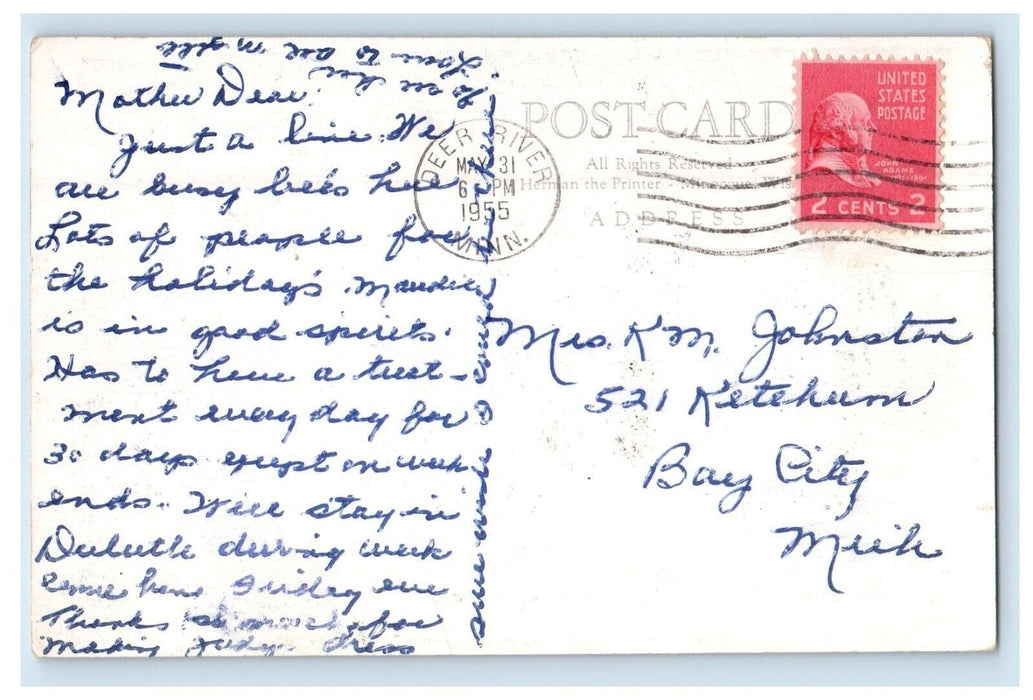 Mother Dear.
Just a line. We
are busy bees here
Lots of people for
the holidays. Maudie
is in good spirits.
Has to have a treat-
ment every day for
30 days except on week
ends. Will stay in
Duluth during week
come home Friday eve
Thanks so much for
making Judy's dress
sure wish I could
to see her
Love to all
POST CARD
All Rights Reserved
Herman the Printer - Minocqua, Wis.
ADDRESS
DEER RIVER
MAY 31
6 PM
1955
MINN.
UNITED
STATES
POSTAGE
JOHN
ADAMS
2 CENTS 2
Mrs. K M. Johnston
521 Ketchum
Bay City
Mich